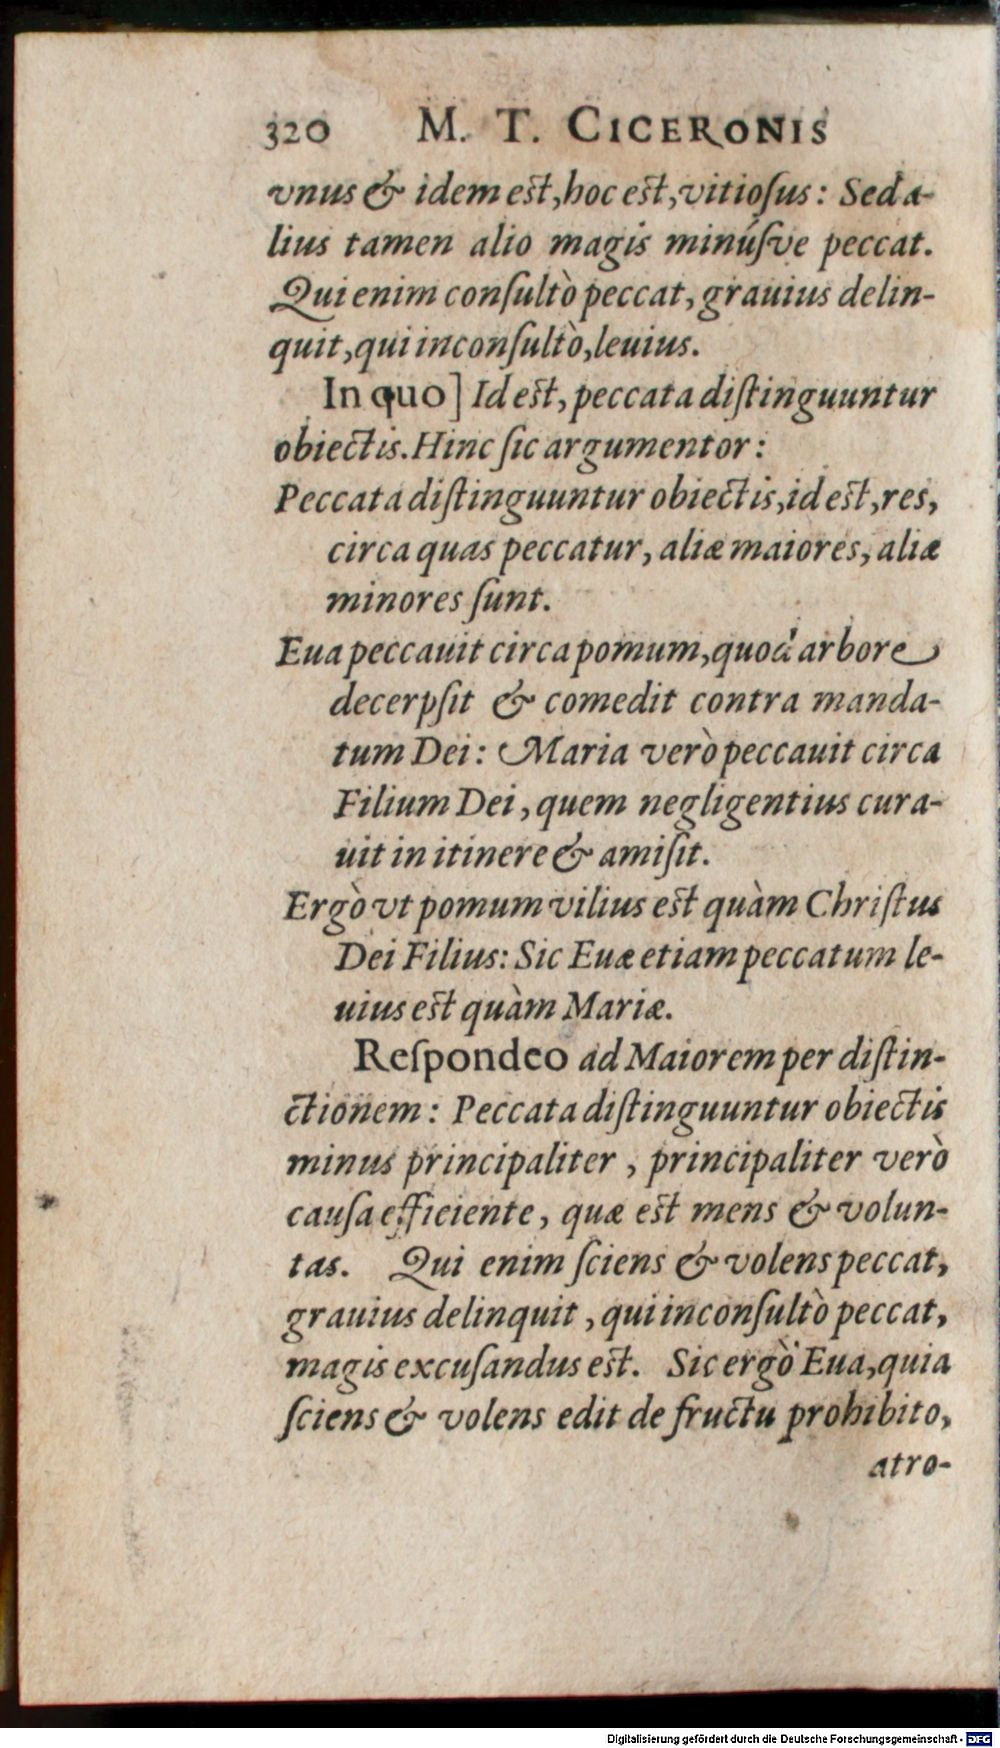 320 M. T. CICERONIS
vnus & idem est, hoc est, vitioſus: Sed a-
lius tamen alio magis minúſve peccat.
Qui enim conſultò peccat, grauius delin-
quit, qui inconſultò, leuius.
In quo] Id est, peccata diſtinguuntur
obiectis. Hinc ſic argumentor:
Peccata diſtinguuntur obiectis, id est, res,
circa quas peccatur, aliæ maiores, aliæ
minores ſunt.
Eua peccauit circa pomum, quod arbore
decerpſit & comedit contra manda-
tum Dei: Maria verò peccauit circa
Filium Dei, quem negligentius cura-
uit in itinere & amiſit.
Ergò vt pomum vilius est quàm Chriſtus
Dei Filius: Sic Euæ etiam peccatum le-
uius est quàm Mariæ.
Reſpondeo ad Maiorem per diſtin-
ctionem: Peccata diſtinguuntur obiectis
minus principaliter, principaliter verò
cauſa efficiente, quæ est mens & volun-
tas. Qui enim ſciens & volens peccat,
grauius delinquit, qui inconſultò peccat,
magis excuſandus est. Sic ergò Eua, quia
ſciens & volens edit de fructu prohibito,
atro-
Digitalisierung gefördert durch die Deutsche Forschungsgemeinschaft - DFG